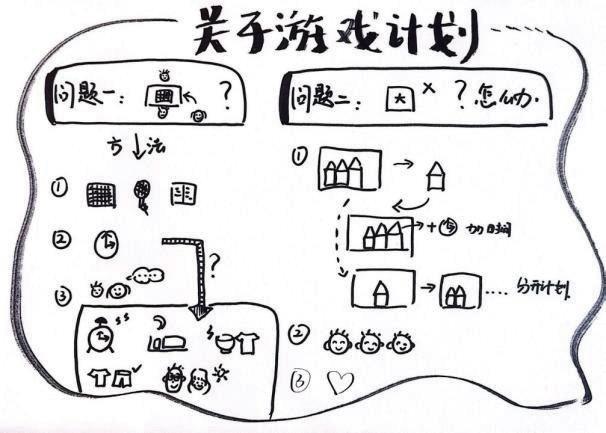 关于游戏计划
问题一：
？
问题二：
大 × ？怎么办.
方法
①
②
？
③
①
+ 加时间
...... 分开计划
②
③